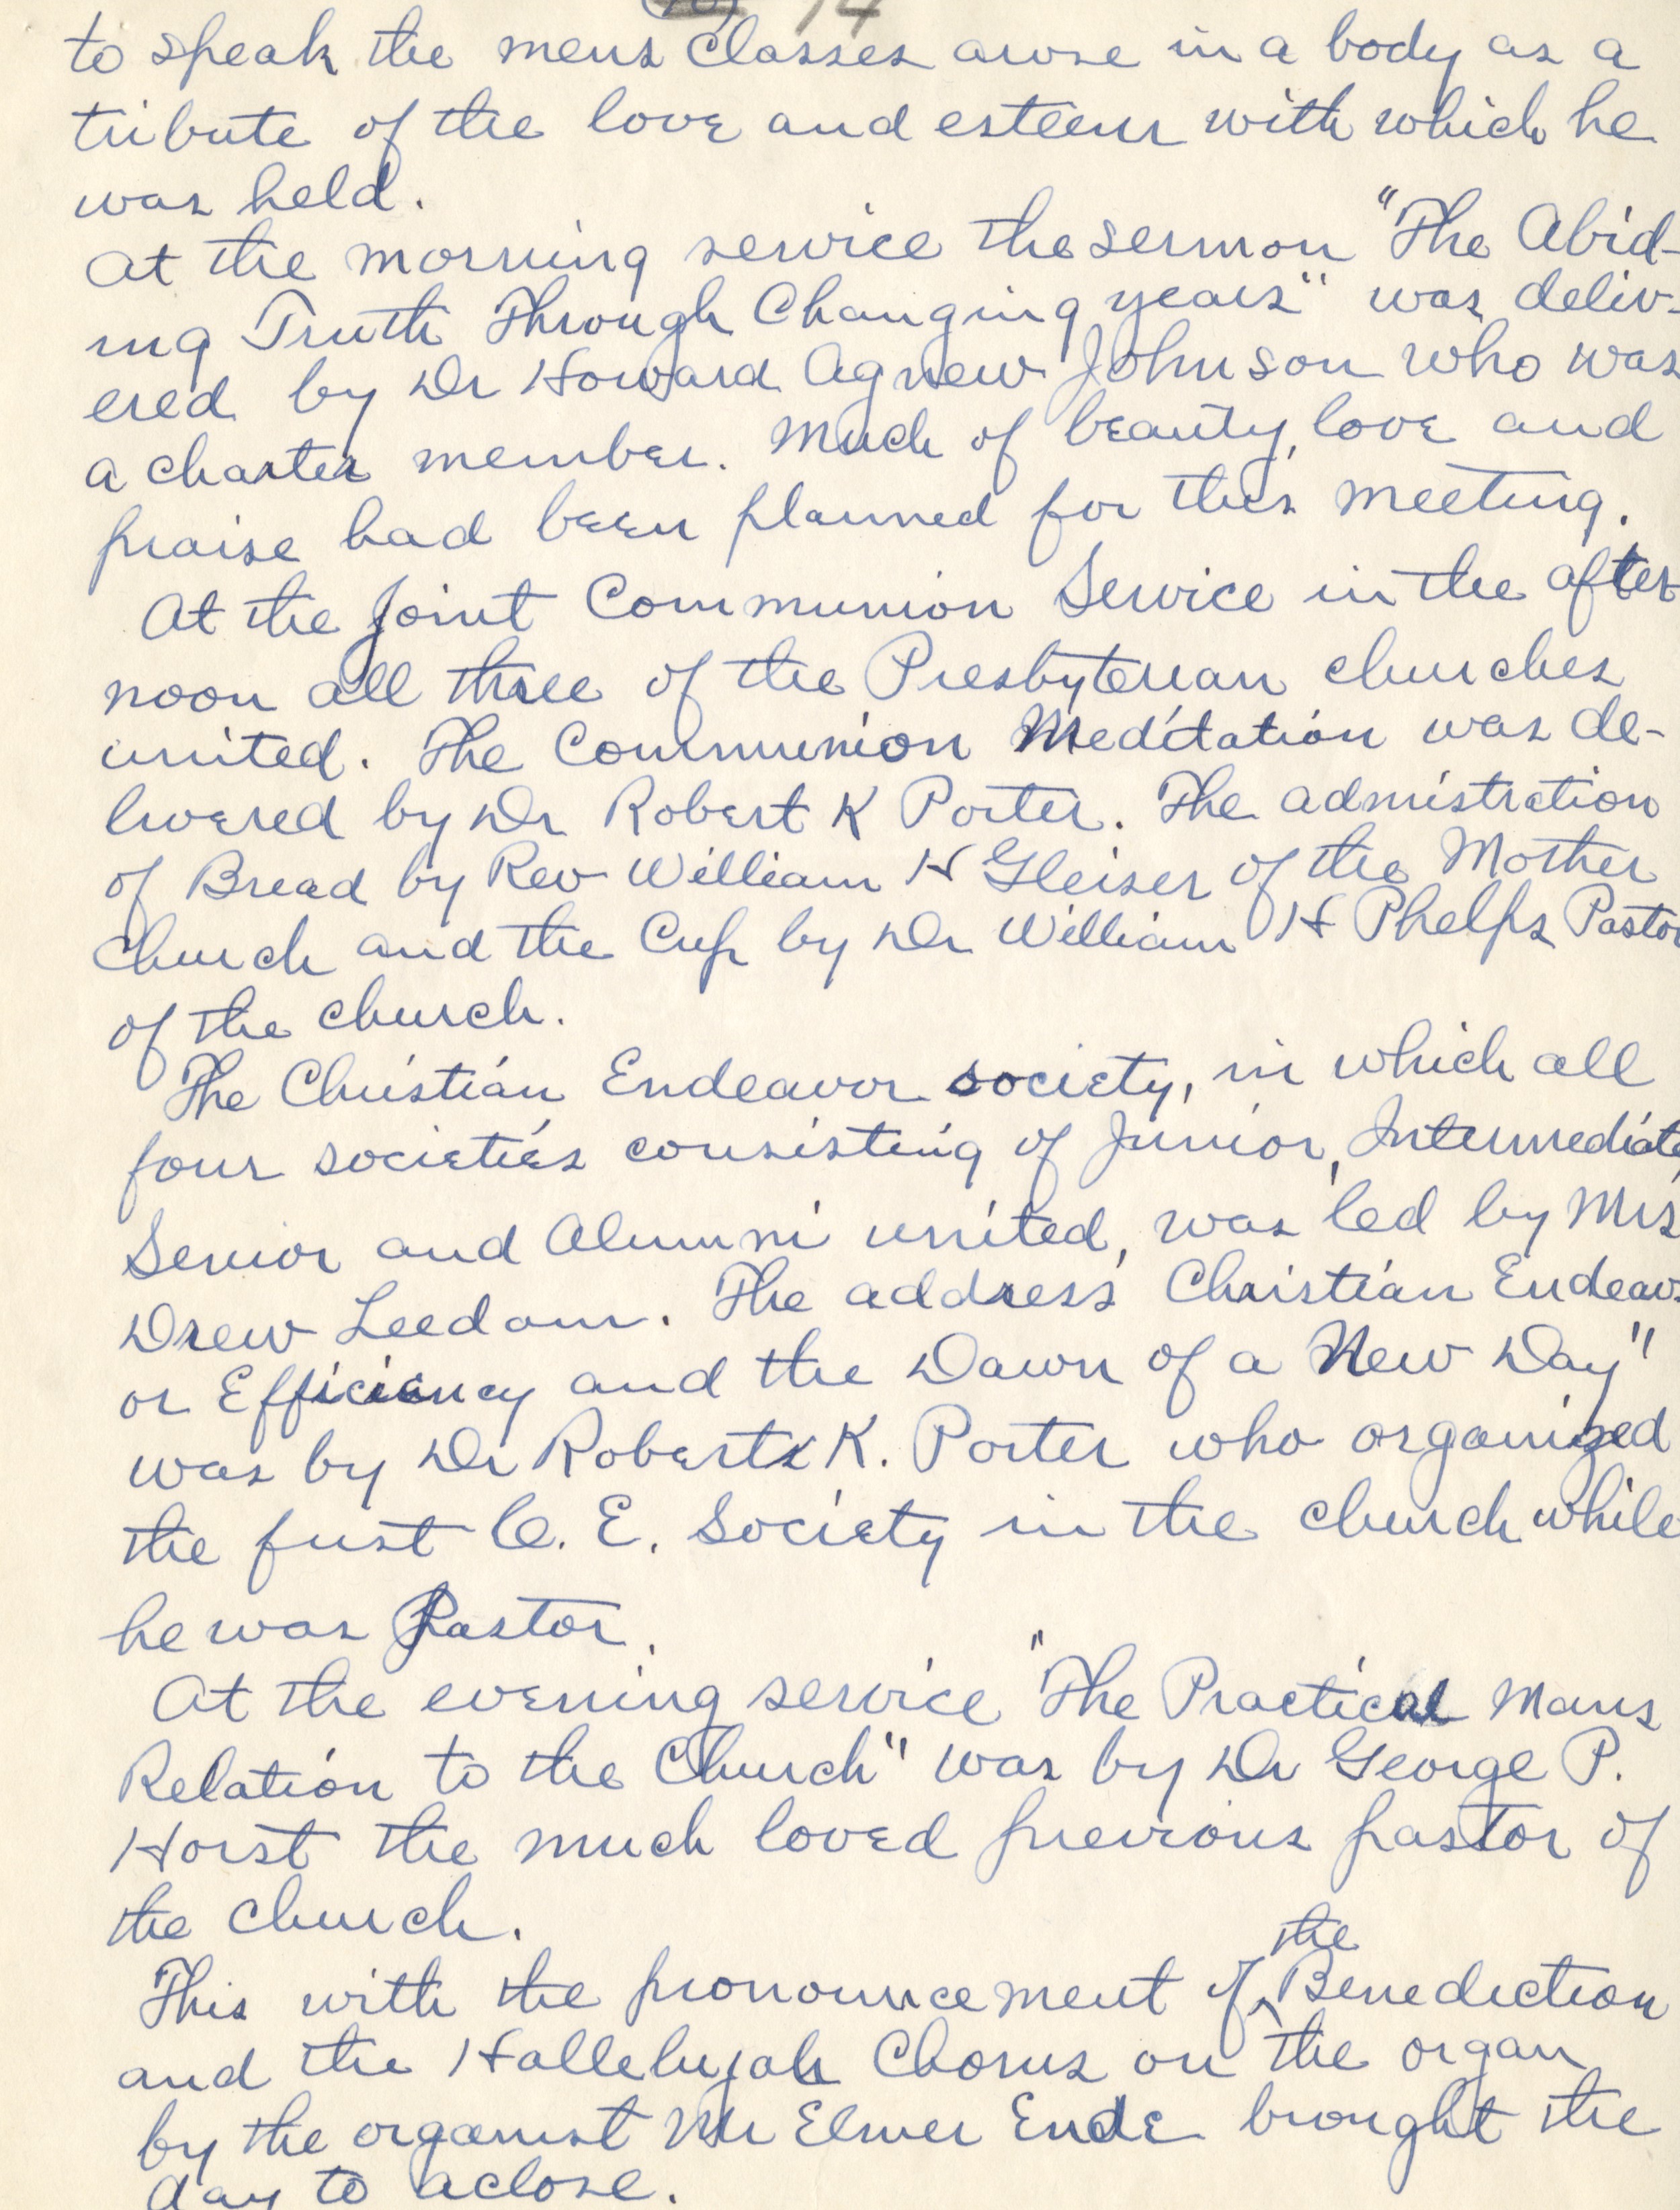 14
to speak the mens Classes arose in a body as a
tribute of the love and esteem with which he
was held.
At the morning service the sermon "The Abid-
ing Truth Through Changing years" was deliv-
ered by Dr Howard Agnew Johnson who was
a charter member. Much of beauty, love and
praise had been planned for this meeting.
At the Joint Communion Service in the after
noon all three of the Presbyterian churches
united. The Communion Meditation was de-
livered by Dr Robert K Porter. The admistration
of Bread by Rev William H Gleiser of the Mother
Church and the Cup by Dr William H Phelps Pastor
of the church.
The Christian Endeavor society, in which all
four societies consisting of Junior, Intermediate
Senior and Alumni united, was led by Mrs
Drew Leedom. The address Christian Endeav
or Efficiency and the Dawn of a New Day"
was by Dr Roberts K. Porter who organized
the first C. E. Society in the church while
he was Pastor.
At the evening service "The Practical Mans
Relation to the Church" was by Dr George P.
Horst the much loved previous pastor of
the church.
This with the pronouncement of the Benediction
and the Hallelujah Chorus on the organ
by the organist Mr Elmer Ende brought the
day to a close.